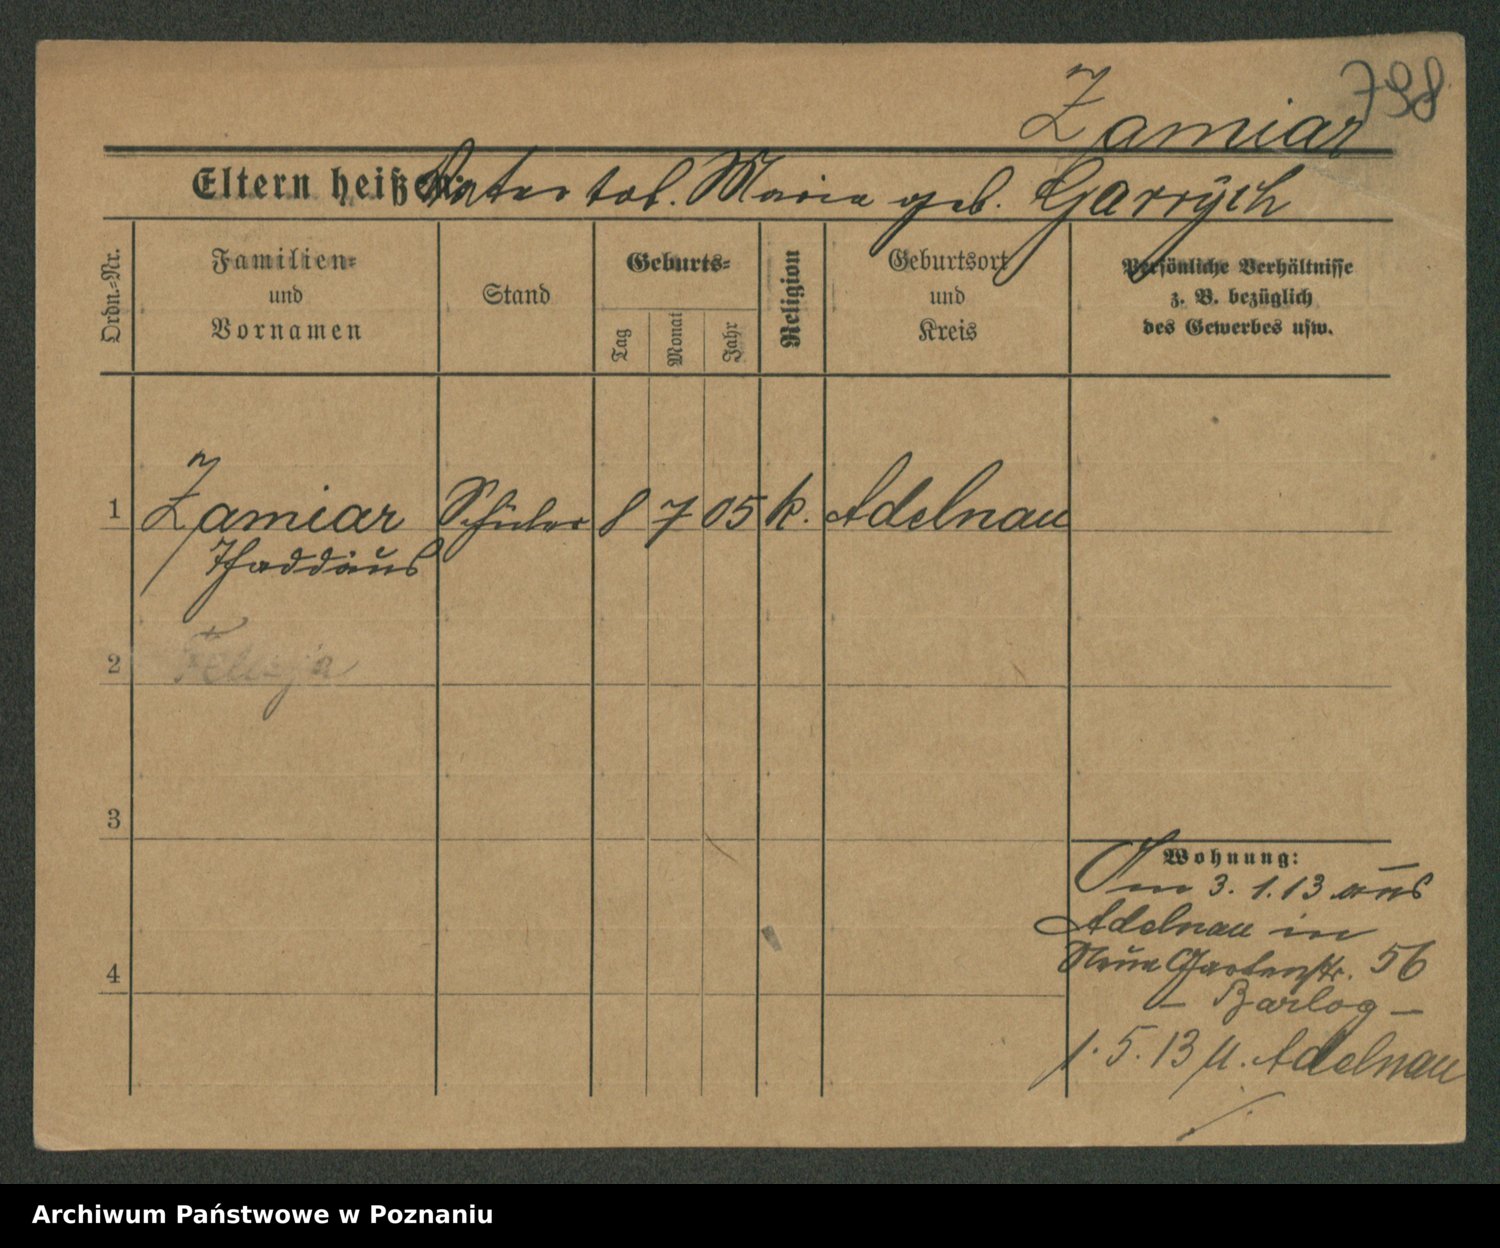 798
Zamiar
Eltern heißen: Vater tot. Maria geb. Garrÿch
Ordn.=Nr.
Familien=
und
Vornamen
Stand
Geburts=
Tag
Monat
Jahr
Religion
Geburtsort
und
Kreis
Persönliche Verhältnisse
z. B. bezüglich
des Gewerbes usw.
1 Zamiar Schüler 8 7 05 k. Adelnau
Thaddäus
2
3
4
Wohnung:
Am 3. 1. 13 aus
Adelnau in
Neue Gartenstr. 56
— Barlog —
1. 5. 13 n. Adelnau
Archiwum Państwowe w Poznaniu